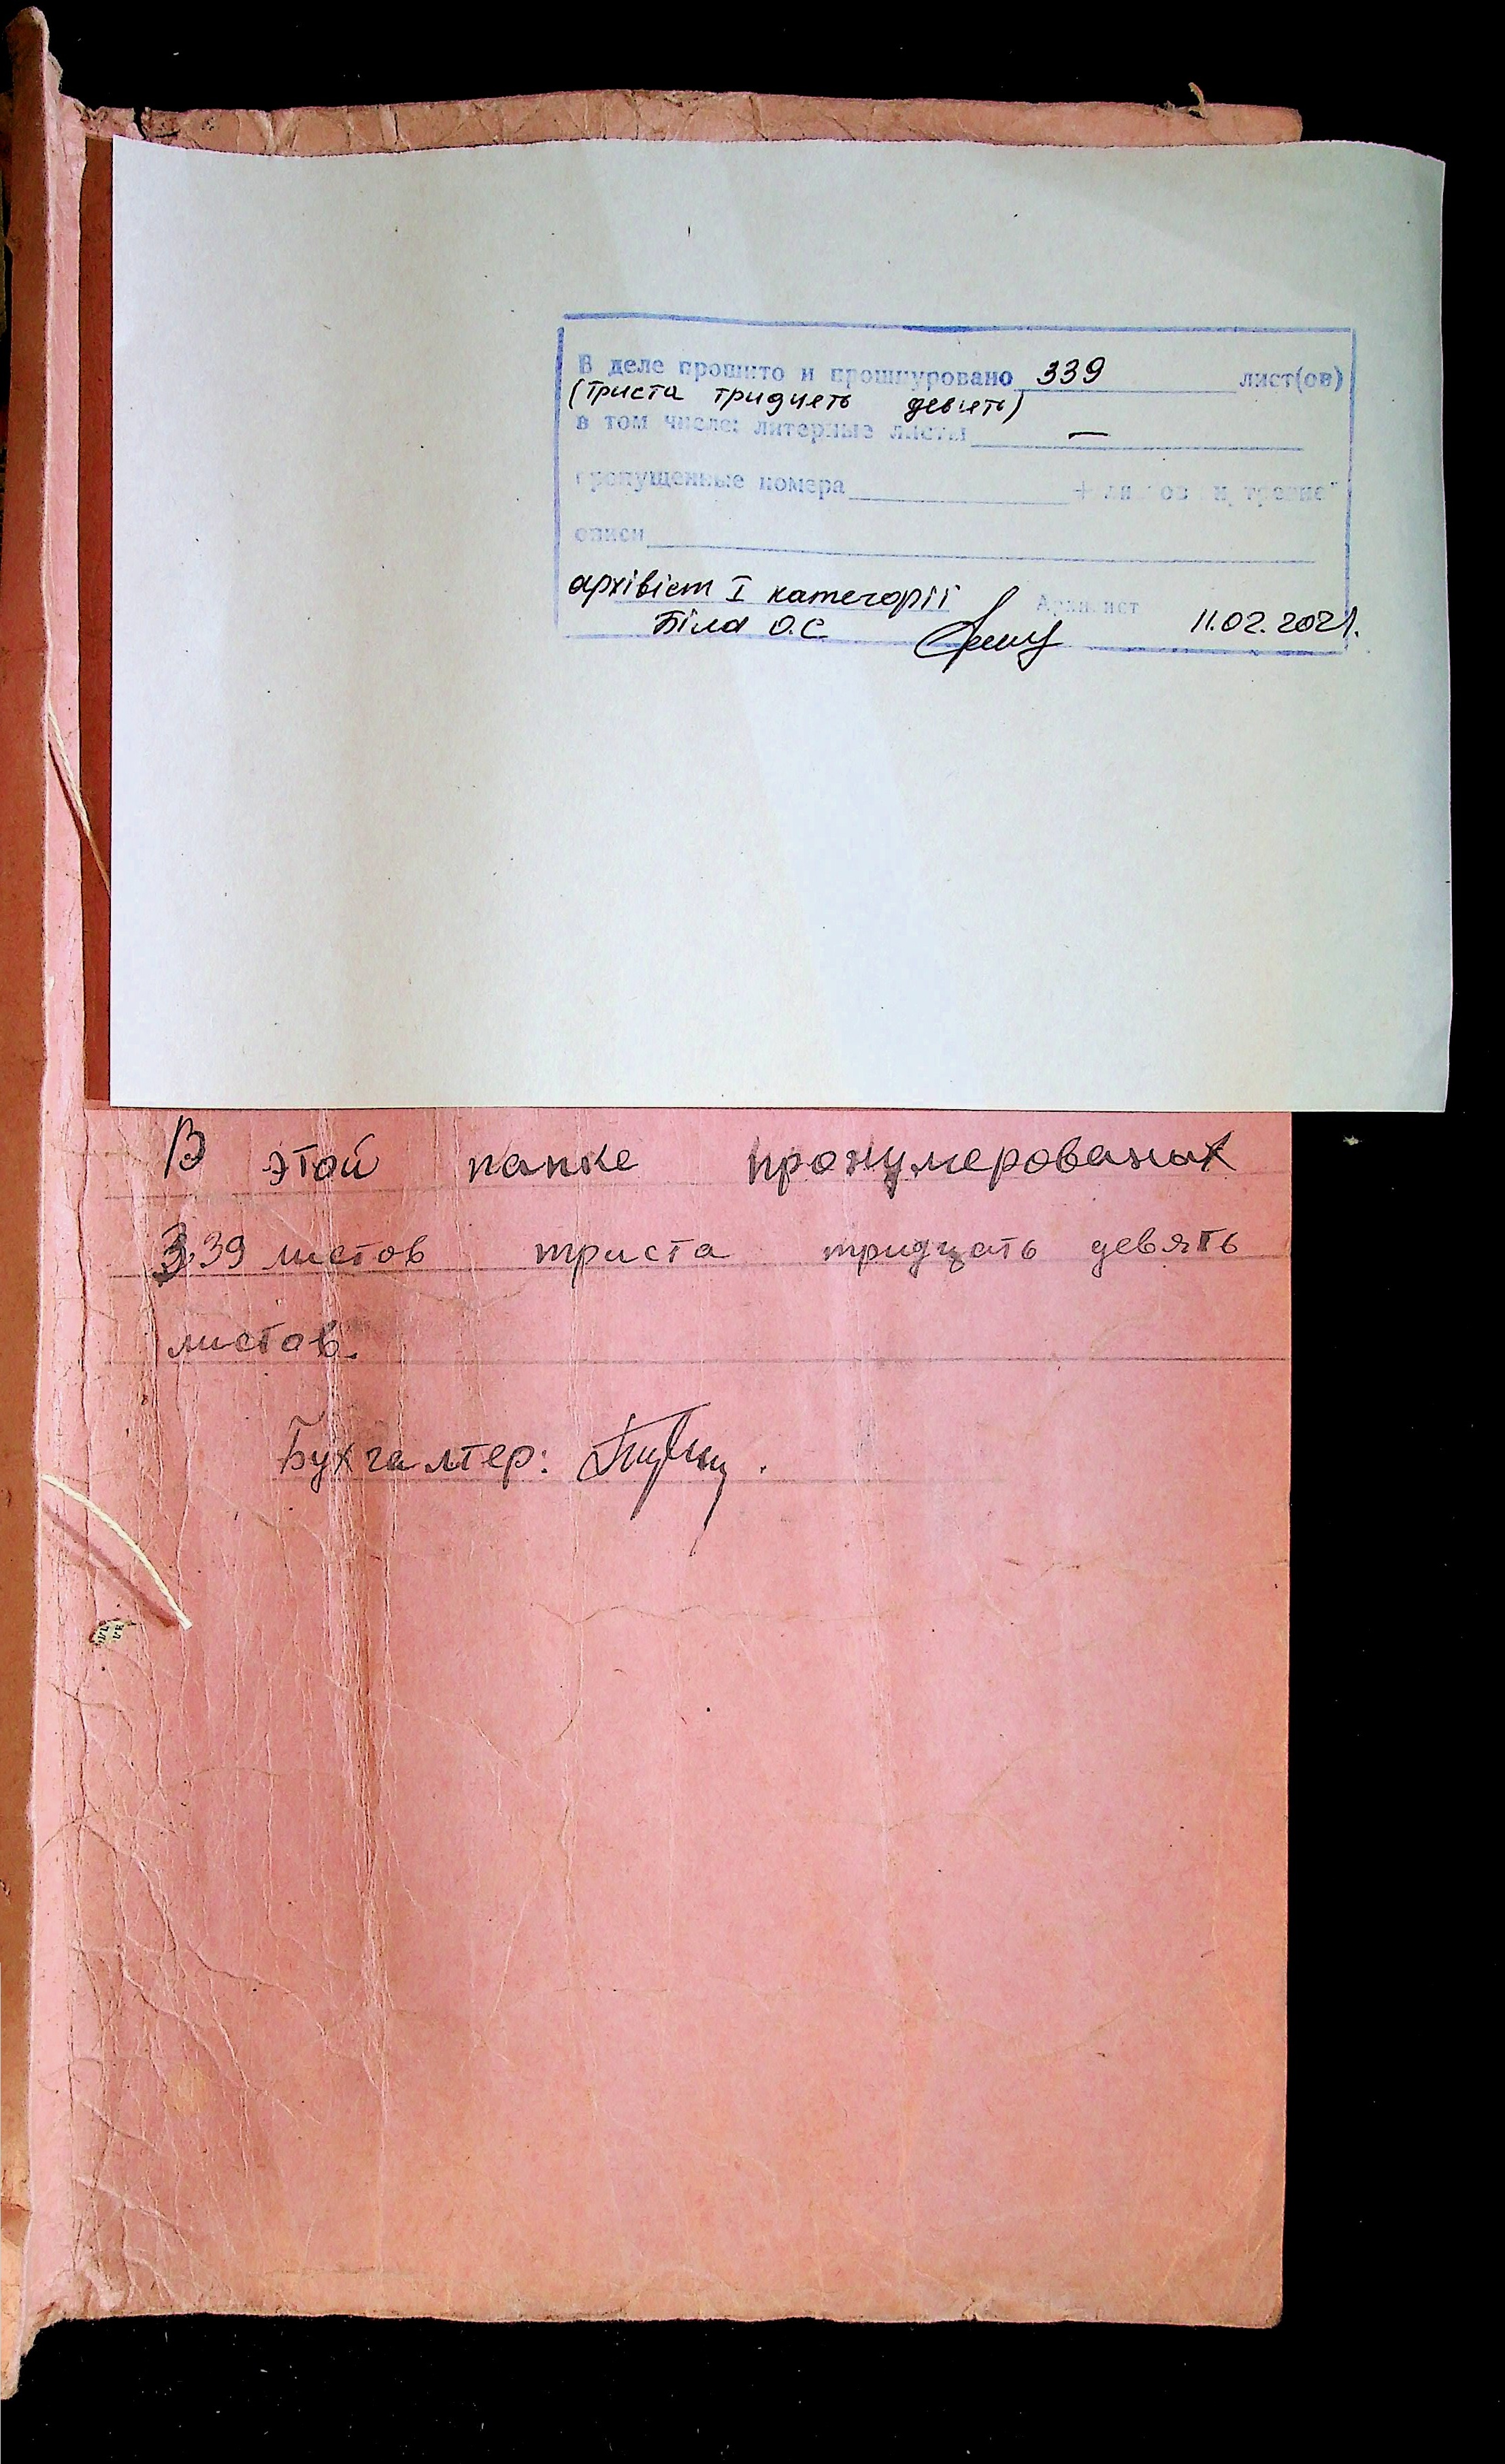 В деле прошито и прошнуровано 339 лист(ов)
(триста тридцять девять)
в том числе: литерные листы —
пропущенные номера + листов внутренней
описи
архівіст І категорії Архивист
Біла О.С. 11.02.2021.
В этой папке пронумерованых
339 листов триста тридцать девять
листов.
Бухгалтер: